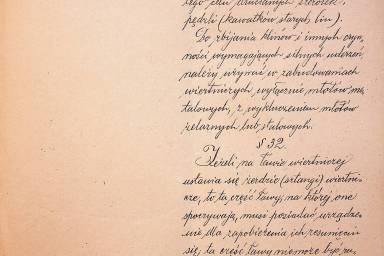 tego celu drucianych szczotek,
pędzli (kawałków starych lin).
Do zbijania klinów i innych czyn-
ności wymagających silnych uderzeń,
należy używać w zabudowaniach
wiertniczych wyłącznie młotów me-
talowych, z wykluczeniem młotów
żelaznych lub stalowych.
§ 32.
Jeżeli na ławie wiertniczej
ustawia się żerdzie (sztangi) wiertni-
cze, to ta część ławy, na której one
spoczywają, musi posiadać urządze-
nie dla zapobieżenia ich zesunięciu
się; ta część ławy nie może być